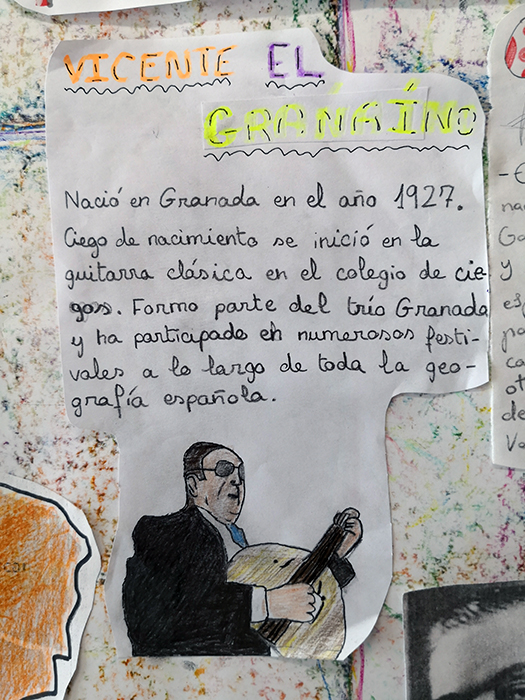 VICENTE EL
GRANAÍNO
Nació en Granada en el año 1927.
Ciego de nacimiento se inició en la
guitarra clásica en el colegio de cie-
gos. Formo parte del trío Granada
y ha participado en numerosos festi-
vales a lo largo de toda la geo-
grafía española.